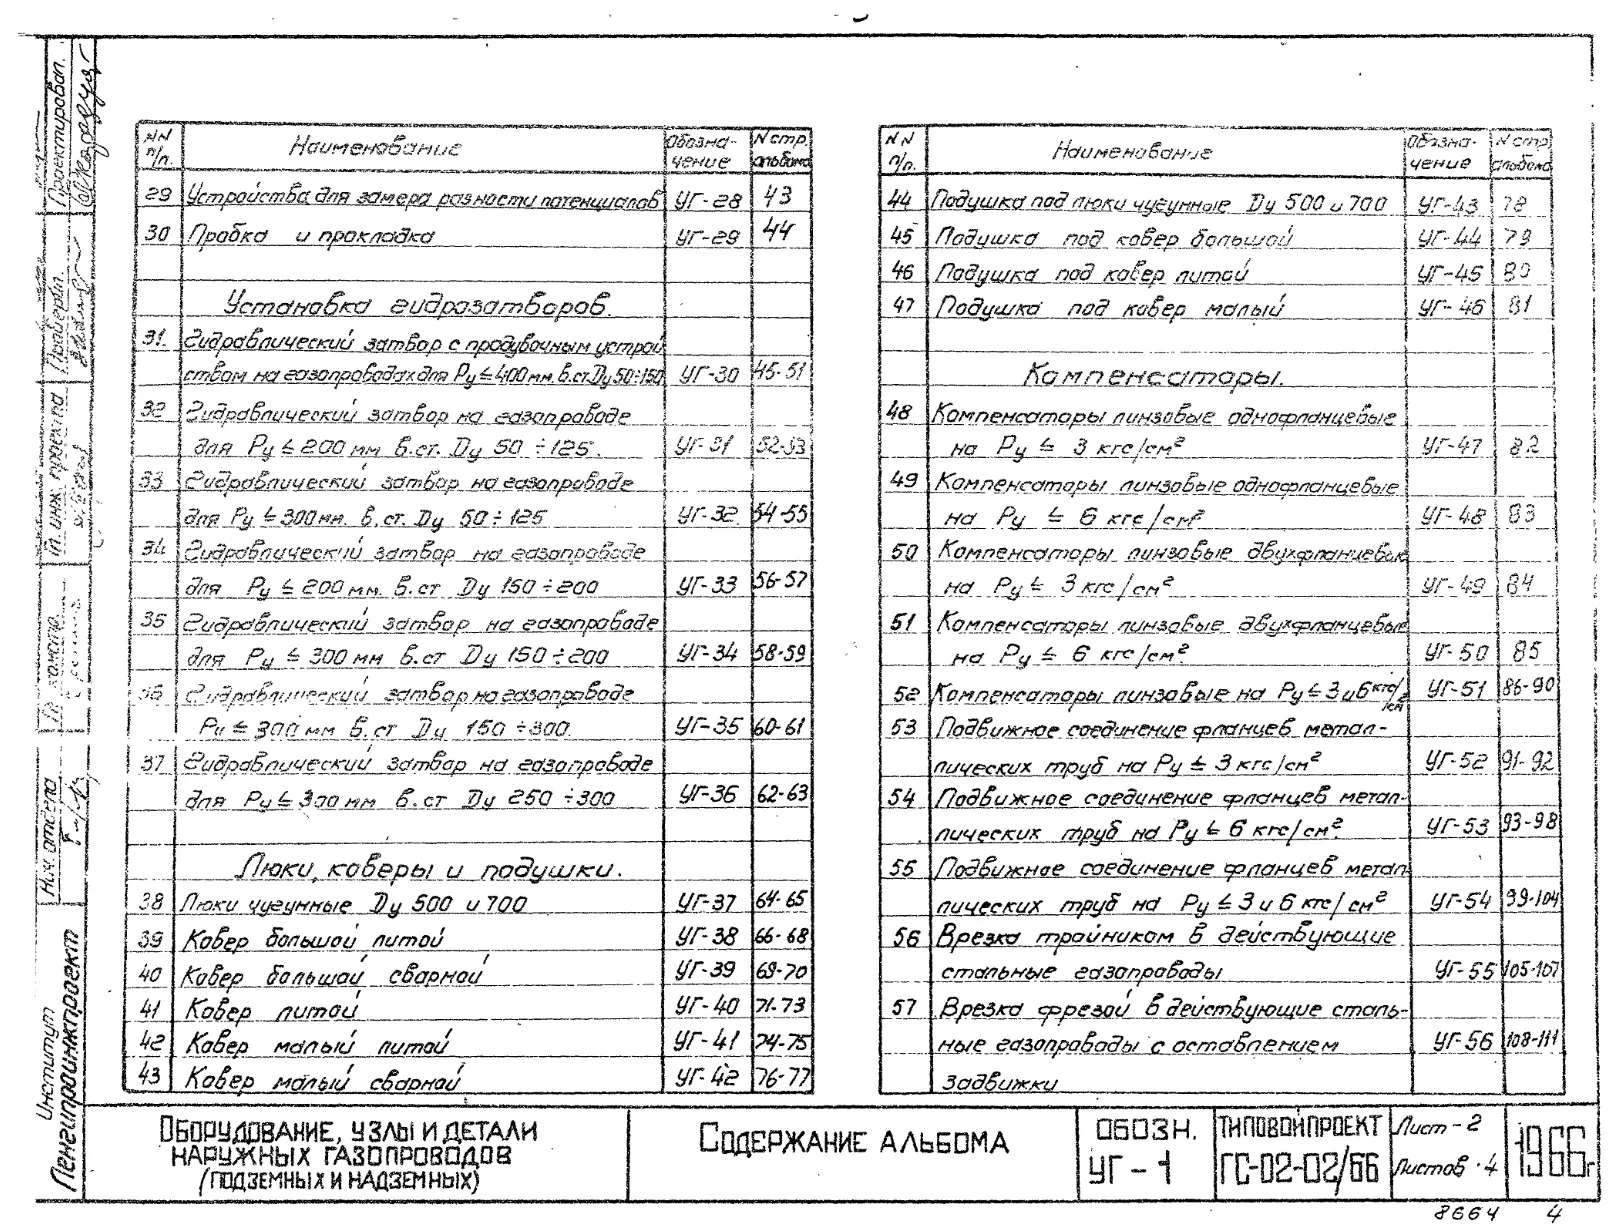 NN п/п. Наименование Обозначение N стр. альбома
29 Устройства для замера разности потенциалов УГ-28 43
30 Пробка и прокладка УГ-29 44
Установка гидрозатворов.
31. Гидравлический затвор с продувочным устрой
ством на газопроводах для Ру ≤ 400 мм. в.ст. Ду 50÷150 УГ-30 45-51
32 Гидравлический затвор на газопроводе
для Ру ≤ 200 мм в.ст. Ду 50 ÷ 125. УГ-31 52-53
33 Гидравлический затвор на газопроводе
для Ру ≤ 300 мм. в.ст. Ду 50 ÷ 125 УГ-32 54-55
34 Гидравлический затвор на газопроводе
для Ру ≤ 200 мм. в.ст Ду 150 ÷ 200 УГ-33 56-57
35 Гидравлический затвор на газопроводе
для Ру ≤ 300 мм в.ст Ду 150 ÷ 200 УГ-34 58-59
36 Гидравлический затвор на газопроводе
Ру ≤ 300 мм в.ст Ду 150 ÷ 300. УГ-35 60-61
37 Гидравлический затвор на газопроводе
для Ру ≤ 300 мм в.ст Ду 250 ÷ 300 УГ-36 62-63
Люки, коверы и подушки.
38 Люки чугунные Ду 500 и 700 УГ-37 64-65
39 Ковер большой литой УГ-38 66-68
40 Ковер большой сварной УГ-39 69-70
41 Ковер литой УГ-40 71-73
42 Ковер малый литой УГ-41 74-75
43 Ковер малый сварной УГ-42 76-77
NN п/п. Наименование Обозначение N стр. альбома
44 Подушка под люки чугунные Ду 500 и 700 УГ-43 78
45 Подушка под ковер большой УГ-44 79
46 Подушка под ковер литой УГ-45 80
47 Подушка под ковер малый УГ-46 81
Компенсаторы.
48 Компенсаторы линзовые однофланцевые
на Ру ≤ 3 кгс/см² УГ-47 82
49 Компенсаторы линзовые однофланцевые
на Ру ≤ 6 кгс/см² УГ-48 83
50 Компенсаторы линзовые двухфланцевые
на Ру ≤ 3 кгс/см² УГ-49 84
51 Компенсаторы линзовые двухфланцевые
на Ру ≤ 6 кгс/см² УГ-50 85
52 Компенсаторы линзовые на Ру ≤ 3 и 6 кгс/см УГ-51 86-90
53 Подвижное соединение фланцев метал-
лических труб на Ру ≤ 3 кгс/см² УГ-52 91-92
54 Подвижное соединение фланцев метал-
лических труб на Ру ≤ 6 кгс/см² УГ-53 93-98
55 Подвижное соединение фланцев метал
лических труб на Ру ≤ 3 и 6 кгс/см² УГ-54 99-104
56 Врезка тройником в действующие
стальные газопроводы УГ-55 105-107
57 Врезка фрезой в действующие сталь-
ные газопроводы с оставлением УГ-56 108-111
задвижки
Проектировал.
Гл. инж. проекта
Нач. отдела
Институт
Ленгипроинжпроект
Оборудование, узлы и детали
наружных газопроводов
(подземных и надземных)
Содержание альбома
Обозн.
УГ-1
Типовой проект
ГС-02-02/66
Лист-2
Листов-4
1966г
8664 4